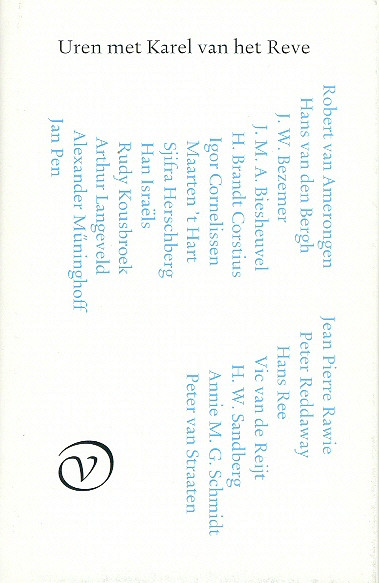 Uren met Karel van het Reve
Robert van Amerongen
Hans van den Bergh
J. W. Bezemer
J. M. A. Biesheuvel
H. Brandt Corstius
Igor Cornelissen
Maarten 't Hart
Sjifra Herschberg
Han Israëls
Rudy Kousbroek
Arthur Langeveld
Alexander Münninghoff
Jan Pen
Jean Pierre Rawie
Peter Reddaway
Hans Ree
Vic van de Reijt
H. W. Sandberg
Annie M. G. Schmidt
Peter van Straaten
V